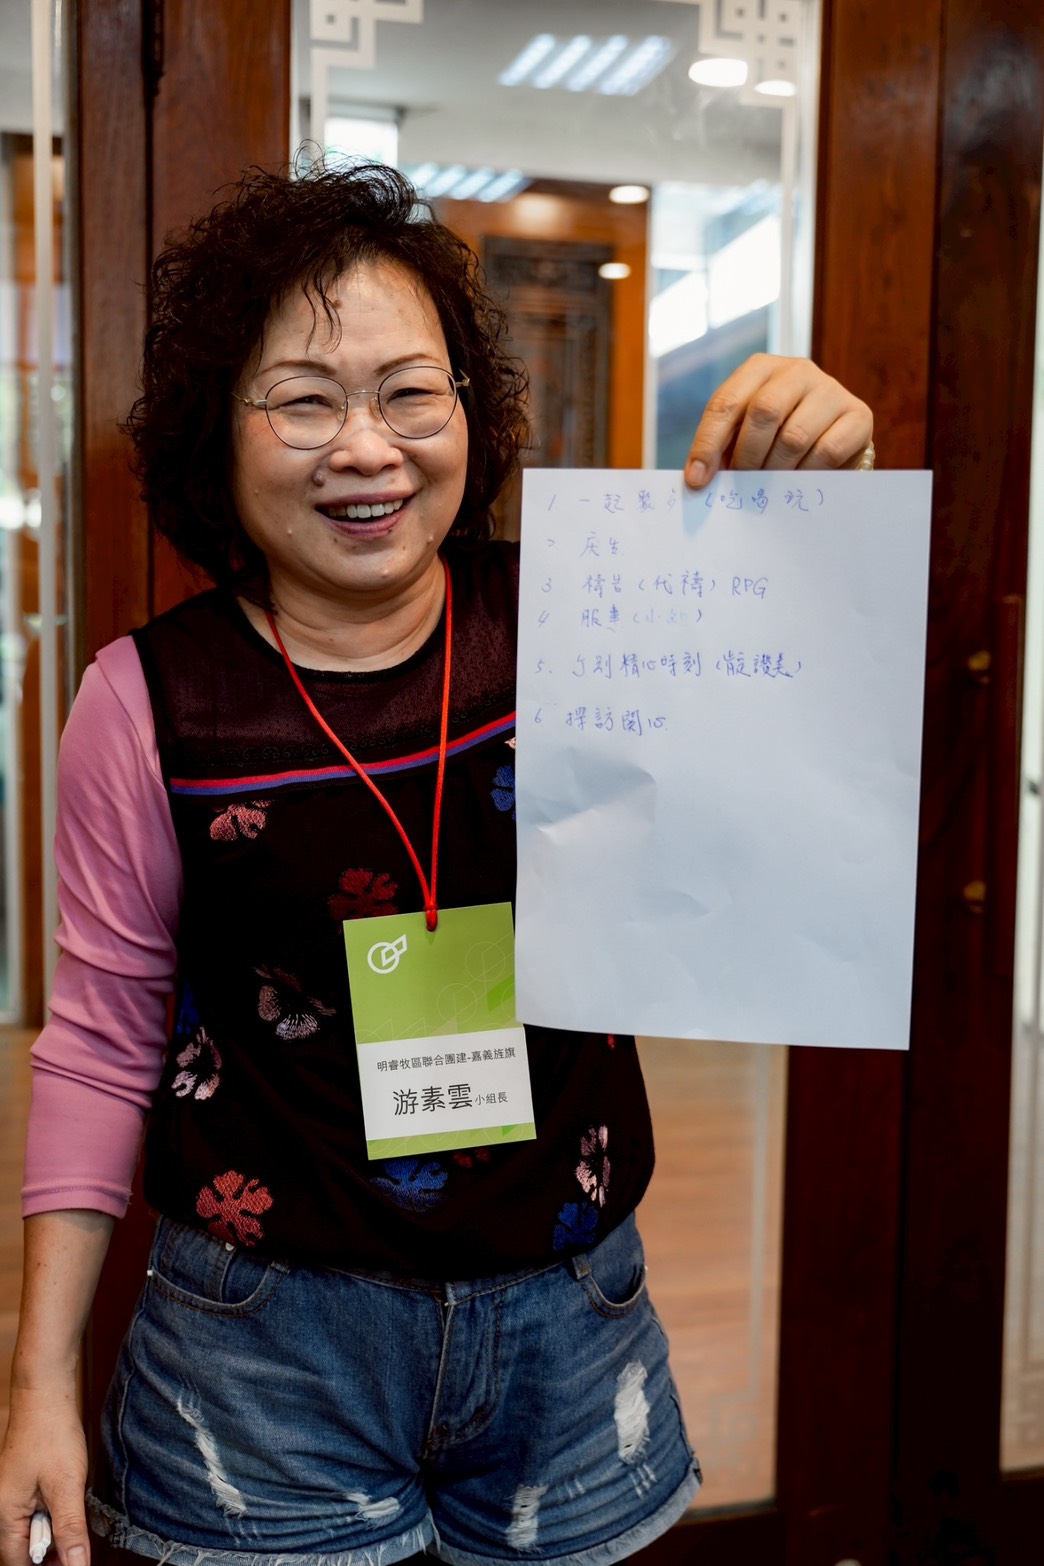 1 一起聚會 (吃喝玩)
2 庆生
3 禱告 (代禱) RPG
4 服事 (小組)
5. 個別精心時刻 (讚美)
6 探訪関心
明睿牧區聯合團建-嘉義旌旗
游素雲小組長